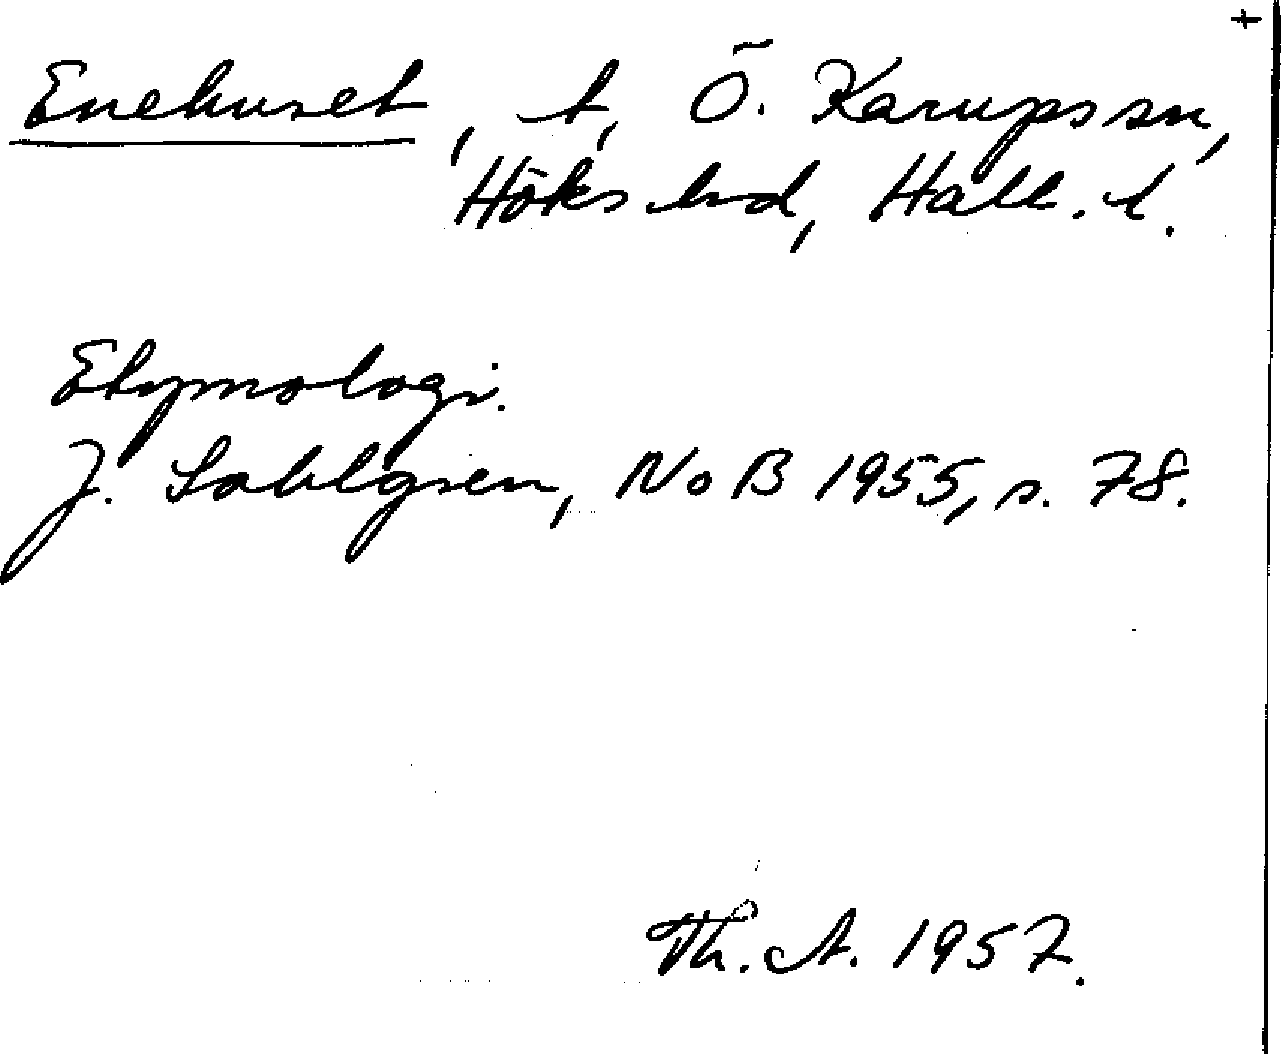 +
Enehuset, t, Ö. Karups sn,
Höks hd, Hall. l.
Etymologi.
J. Sahlgren, NoB 1955, s. 78.
Th. A. 1957.